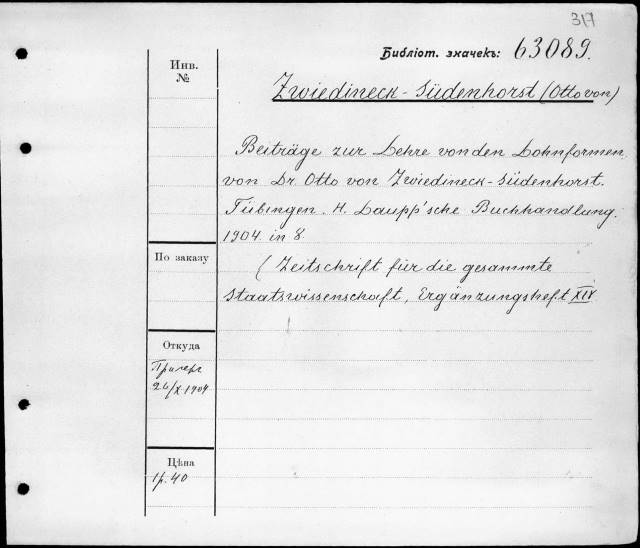 317
Библіот. значекъ: 63089.
Инв.
№
Zwiedineck-Südenhorst (Otto von)
Beiträge zur Lehre von den Lohnformen
von Dr. Otto von Zwiedineck-Südenhorst.
Tübingen. H. Laupp'sche Buchhandlung.
1904. in 8.
По заказу
(Zeitschrift für die gesammte
Staatswissenschaft, Ergänzungsheft XIV
Откуда
26/X 1904
Цѣна
1р. 40